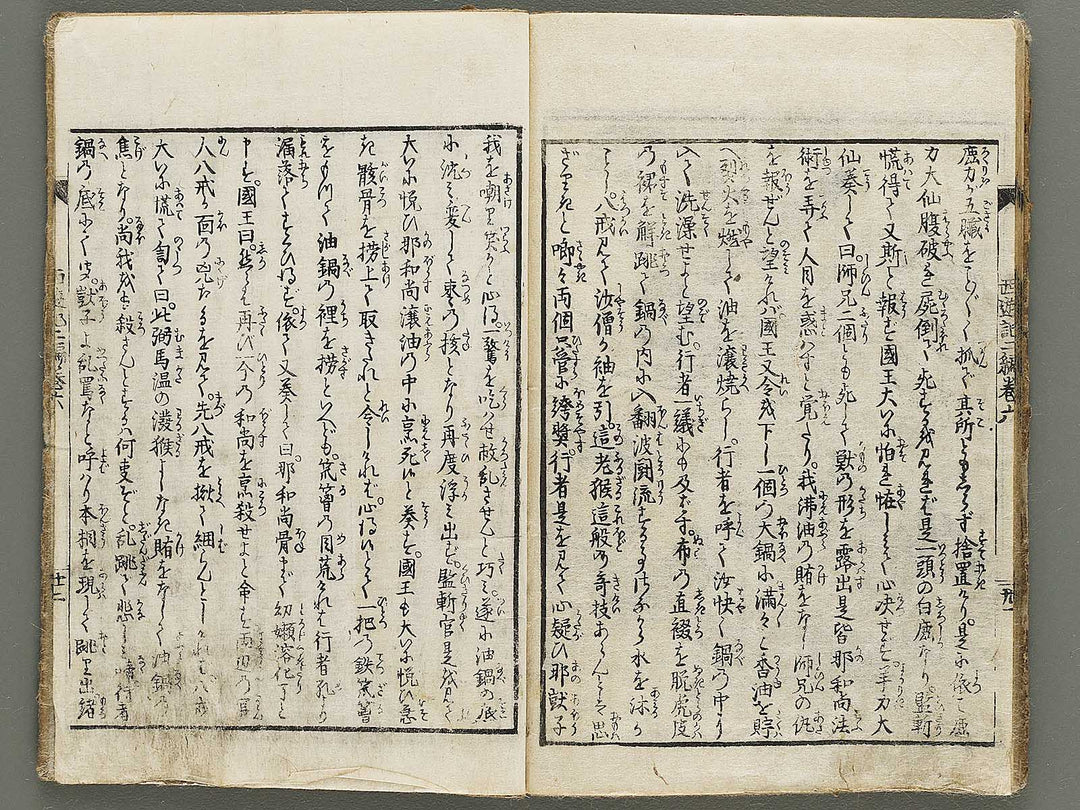 鹿力が五臓をことごとく抓で其所ともしらず捨置けり。是に依て鹿
力大仙腹破き屍倒て死するを見れば是一頭の白鹿なり監斬
慌得て又斯と報ず国王大に怕を怪しみて心决せず羊力大
仙奏して曰師兄二個とも死して獣の形を露出是皆那和尚法
術を弄て人目を惑はすと覚たり。我沸油の賭をなし師兄の仇
を報ぜんと望ければ国王又令を下し一個の大鍋に満々と香油を貯
へ烈火を燃して油を滾焼らし。行者を呼て汝快く鍋の中に
入て洗澡せよと望む。行者議にも及ばず。布の直綴を脱虎皮
の裙を解跳て鍋の内に入翻波闘流する事さながら水を泳が
ごとし。八戒見て沙僧が袖を引。這老猴這般の奇技あらんとは思
ざりきと喞々両個只管に誇奨。行者是を見て心疑ひ那獃子
我を嘲り笑ふと心得。一驚を吃はせ敝乱させんと巧。遂に油鍋の底
に沈み変じて棗の核となり再度浮み出ず。監斬官是を見て
大に悦ひ那和尚滾油の中に烹死ぬと奏す。国王も大に悦ひ急
ぎ骸骨を撈上て取きたれと令しければ。心得ぬとて一把の鉄笊籬
をもつて油鍋の裡を撈といへども。笊籬の目荒ければ行者が
漏落てすくひ得ず。依て又奏して曰。那和尚骨まで幼嫩溶化しと
申を。国王曰。然らば再び一個の和尚を烹殺せよと命ず両辺の官
人八戒が面の兇なるを見て先八戒を揪て綑らんとしければ八戒
大に慌て罵て曰。此弼馬温の溌猴よしなき賭をなして油鍋の
焦となり。尚我をも殺さんとするは何事ぞと。乱跳て悲しむ 行者
鍋の底にて聞。獃子よ乱罵なと呼はり本相を現して跳り出緒
西遊記二編巻六
廿二